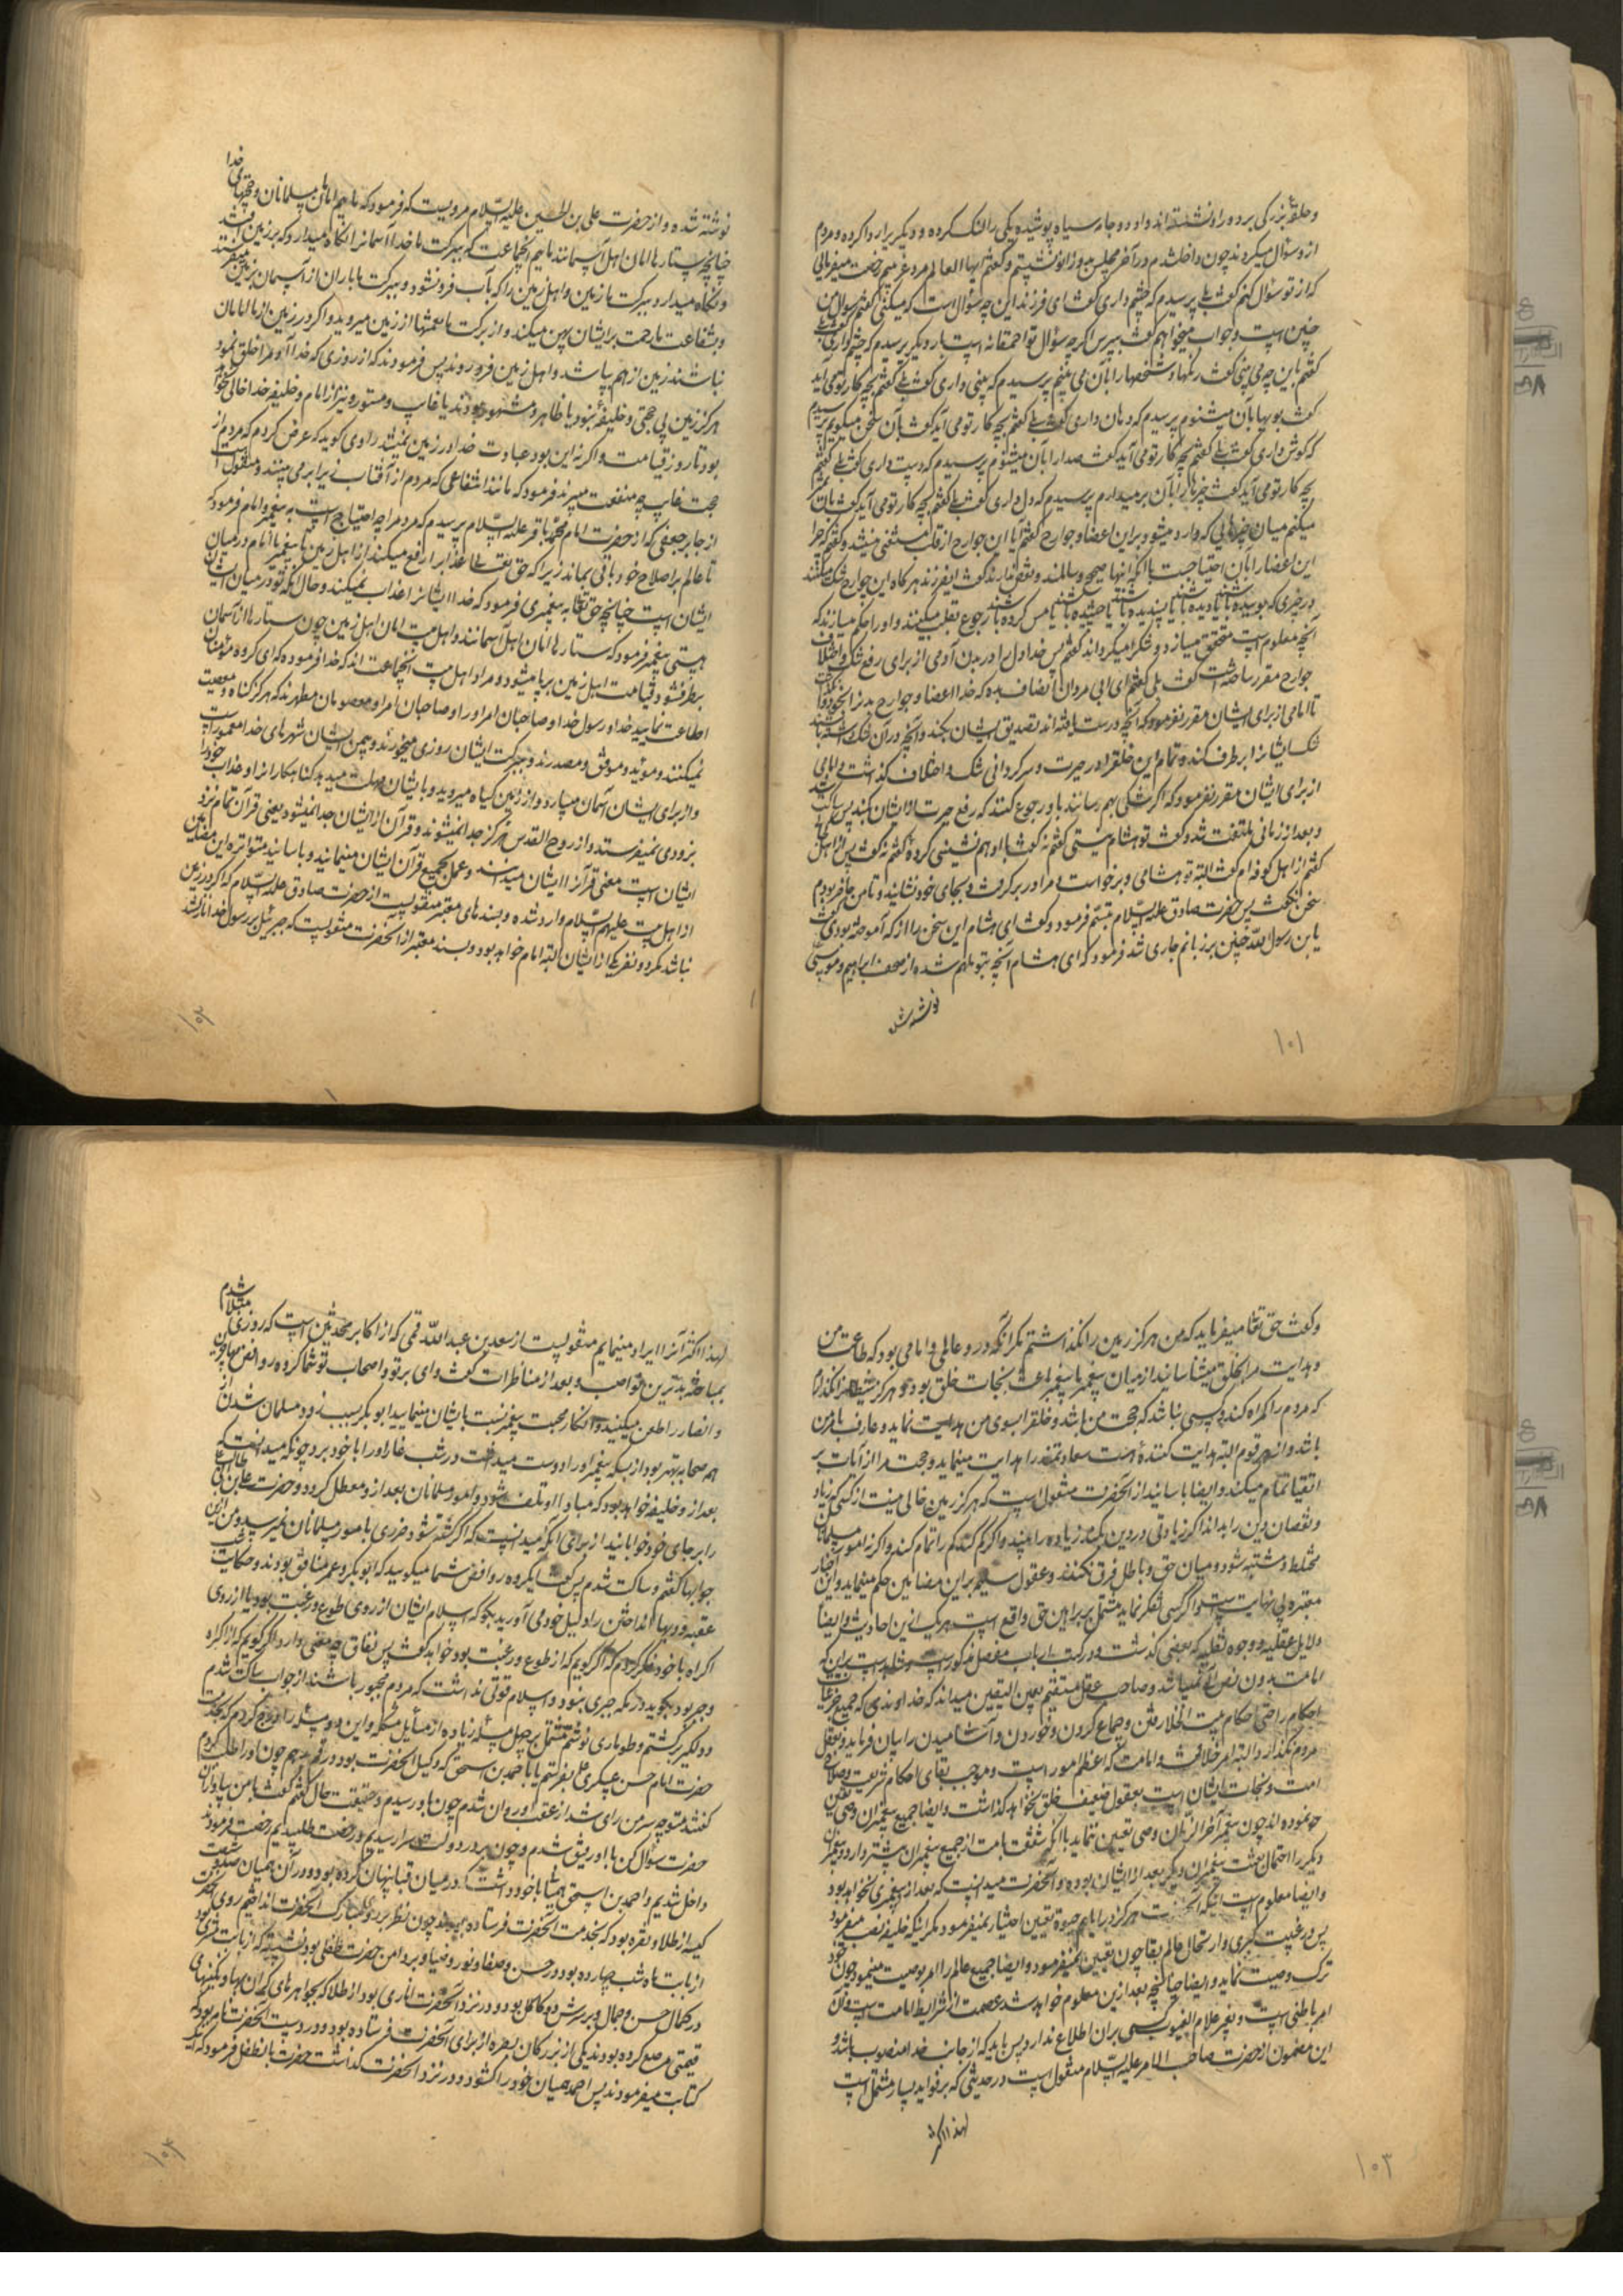 و حلقهٔ بزرگی بر دور او نشسته‌اند و او دو جامه سیاه پوشیده یکی را لنگ کرده و دیگری را ردا کرده و مردم
از و سؤال میکردند چون داخل شدم در آخر مجلس بدو زانو نشستم و گفتم ایها العالم مرد غریبم رخصت میفرمائی
که از تو سؤال کنم گفت بلی پرسیدم که چشم داری گفت ای فرزند این چه سؤال است که میکنی گفتم سؤال من
چنین است و جواب میخواهم گفت بپرس اگرچه سؤال تو احمقانه است بار دیگر پرسیدم که چشم داری گفت بلی
گفتم باین چه می بینی گفت رنگها و شخصها را بآن می بینم پرسیدم که بینی داری گفت بلی گفتم بچه کار تو می آید
گفت بویها بآن میشنوم پرسیدم که دهان داری گفت بلی گفتم بچه کار تو می آید گفت بآن سخن میگویم پرسیدم
که گوش داری گفت بلی گفتم بچه کار تو می آید گفت صداها را بآن میشنوم پرسیدم که دست داری گفت بلی گفتم
بچه کار تو می آید گفت چیزها را بآن برمیدارم پرسیدم که دل داری گفت بلی گفتم بچه کار تو می آید گفت بآن تمیز
میکنم میان چیزهائی که وارد میشود بر این اعضا و جوارح گفتم آیا این جوارح از قلب مستغنی نیستند گفت نه گفتم چرا
این اعضا را بآن احتیاجست با آنکه اینها صحیح و سالمند و نقص ندارند گفت ایفرزند هرگاه این جوارح شک میکنند
در چیزی که بوئیده باشند یا دیده باشند یا شنیده باشند یا چشیده باشند یا مس کرده باشند رجوع بقلب میکنند و او را حکم میسازند که
آنچه معلوم است متحقق میسازد و شک را میگرداند گفتم پس خدا دل را در بدن آدمی از برای رفع شک و اختلاف
جوارح مقرر ساخته است گفت بلی گفتم ای ابی مروان انصاف بده که خدا اعضا و جوارح بدن را نگذاشت
تا امامی از برای ایشان مقرر نفرمود که آنچه درست یافته‌اند تصدیق ایشان بکند و آنچه در آن شک داشته باشند
شک ایشانرا بر طرف کند و تمام این خلق را در حیرت و سرگردانی شک و اختلاف گذاشت و امامی
از برای ایشان مقرر نفرمود که اگر شکی بهم رسانند باو رجوع کنند که رفع حیرت از ایشان بکند پس ساکت شد
و بعد از زمانی ملتفت شد و گفت تو هشام نیستی گفتم نه گفت با او همنشینی کردهٔ گفتم نه گفت پس از اهل کجائی
گفتم از اهل کوفه‌ام گفت البته تو هشامی و برخاست و مرا در بر گرفت و بجای خود نشانید و تا من حاضر بودم
سخن نگفت پس حضرت صادق علیه السّلام تبسّم فرمود و گفت ای هشام این سخن را از که آموخته بودی گفت
یا بن رسول اللّه چنین بر زبانم جاری شد فرمود که ای هشام آنچه بتو ملهم شده از صحف ابراهیم و موسی
نوشته شده
۱۰۱
نوشته شده و از حضرت علی بن الحسین علیه السّلام مرویست که فرمود که ما ئیم امامان مسلمانان و حجتهای خدا
چنانچه ستاره‌ها امان اهل آسمانند مائیم آنجماعت که ببرکت ما خدا آسمانرا نگاه میدارد که بر زمین افتد
و نگاه میدارد ببرکت ما زمین و اهل زمین را که بآب فرو نشود و ببرکت ما باران از آسمان بزمین میفرستد
و بشفاعت ما رحمت بر ایشان پهن میکند و از برکت ما نعمتها از زمین میروید و اگر در زمین از ما امامان
نباشند زمین از هم بپاشد و اهل زمین فرو روند پس فرمودند که از روزی که خدا آدم را خلق نمود
هرگز زمین بی حجتی و خلیفهٔ نبود یا ظاهر و مشهور بودند یا غایب و مستور و نیز از امام و خلیفه خدا خالی نخواهد
بود تا روز قیامت و اگر نه این بود عبادت خدا در زمین نمیشد راوی گوید که عرض کردم که مردم از
حجت غایب چه منفعت میبرند فرمود که مانند انتفاعی که مردم از آفتاب زیر ابر می بینند و منقول است
از جابر جعفی که از حضرت امام محمّد باقر علیه السّلام پرسیدم که مردم را چه احتیاج است به پیغمبر و امام فرمود که
تا عالم بر اصلاح خود باقی بماند زیرا که حق تعالی عذاب را رفع میکند از اهل زمین تا پیغمبر یا امام در میان
ایشان است چنانچه حق تعالی به پیغمبری فرمود که خدا ایشانرا عذاب نمیکند و حال آنکه تو در میان ایشان
هستی پیغمبر فرمود که ستاره‌ها امان اهل آسمانند و اهل بیت امان اهل زمین چون ستاره‌ها از آسمان
بطرف شود قیامت اهل زمین بر پا میشود و مراد اهل بیت آنجماعت اند که خدا فرموده که ای گروه مؤمنان
اطاعت نمایید خدا و رسول خدا و صاحبان امر او را و صاحبان امر او معصومان مطهرند که هرگز گناه و معصیت
نمیکنند و مؤید و موفق و مصدرند و ببرکت ایشان روزی میخورند و بیمن ایشان شهرهای خدا معمور است
و از برای ایشان آسمان میبارد و از زمین گیاه میروید و بایشان مهلت میدهد گناهکاران را و عذاب خود را
بزودی نمیفرستد و از روح القدس هرگز جدا نمیشوند و قرآن از ایشان جدا نمیشود یعنی قرآن تمام نزد
ایشان است معنی قرآن را ایشان میدانند و عمل بجمیع قرآن ایشان مینمایند و باسانید متواتره این مضامین
از اهل بیت علیهم السّلام وارد شده و بسندهای معتبر منقولیست از حضرت صادق علیه السّلام که اگر در زمین
نباشد مگر دو نفر یکی از ایشان البته امام خواهد بود و بسند معتبر از آنحضرت منقولیست که جبرئیل بر رسول خدا نازل شد
۱۰۲
و گفت حق تعالی میفرماید که من هرگز زمین را نگذاشتم مگر آنکه در و عالمی و امامی بود که طاعت من
و هدایت مرا بخلق میشناسانید از میان پیغمبر تا پیغمبر باعث نجات خلق بود و هرگز شیطانرا نگذارم
که مردم را گمراه کند و کسی نباشد که حجت من باشد و خلق را بسوی من هدایت نماید و عارف بامر من
باشد و از هر قوم البته هدایت کنندهٔ هست سعادتمند را هدایت مینماید و حجت مرا از آیات بر
اشقیا تمام میکند و ایضا باسانید از آنحضرت منقول است که هرگز زمین خالی نیست از کسی که زیاد
و نقصان دین را بداند اگر زیادتی در دین بکنند زیاده را بیندازد و اگر کم کنند کم را تمام کند و اگر نه امور مسلمانان
مختلط و مشتبه شود و میان حق و باطل فرق نکنند و عقول سلیم بر این مضامین حکم مینماید و این اخبار
معتبره بی نهایت است و اگر کسی تفکر نماید مشتمل بر براهین حق واقع است هر یک از این احادیث و ایضا
دلایل عقلیه و وجوه نقلیه که بعضی گذشت و در کتب ارباب مفصل مذکور است شاهد است بر این که
امامت بدون نص الهی نمیباشد و صاحب عقل مستقیم بعین الیقین میداند که خداوندی که جمیع جزئیات
احکام را حتی احکام بیت الخلا رفتن و جماع کردن و خوردن و آشامیدن را بیان فرماید و بعقل
مردم نگذارد البته امر خلافت و امامت که اعظم امور است و موجب بقای احکام شریعت و صلاح
امت و نجات ایشان است بعقول ضعیف خلق نخواهد گذاشت و ایضا جمیع پیغمبران وصی تعیین
نموده‌اند چون پیغمبر آخر الزمان وصی تعیین ننماید با آنکه شفقت بامت از جمیع پیغمبران بیشتر دارد و پیغمبران
دیگر را احتمال بعثت پیغمبران دیگر بعد از ایشان بوده و آنحضرت میدانست که بعد از پیغمبری نخواهد بود
و ایضا معلوم است اینکه آنحضرت هرگز در ایام حیوة تعیین اختیار نمیفرمود مگر اینکه خلیفه نصب میفرمود
پس در غیبت کبری و ارتحال عالم بقا چون تعیین نمیفرمود و ایضا جمیع عالم را امر بوصیت مینمود چون خود
ترک وصیت نماید و ایضا چنانچه بعد ازین معلوم خواهد شد عصمت از شرایط امامت است و آن
امر باطنی است و بغیر علام الغیوب کسی بر آن اطلاع ندارد پس باید که از جانب خدا منصوب باشد و
این مضمون از حضرت صاحب الامر علیه السّلام منقول است در حدیثی که بر فواید بسیار مشتمل است
لهذا اکثر
۱۰۳
لهذا اکثر آنرا ایراد مینمایم منقولیست از سعد بن عبد اللّه قمی که از اکابر محدثین است که روزی مبتلا شدم
بمباحثه بدترین نواصب و بعد از مناظرات گفت وای بر تو و اصحاب تو شما گروه روافض مهاجرین
و انصار را طعن میکنید و انکار محبت پیغمبر نسبت بایشان مینمایید ابو بکر بسبب زود مسلمان شدن از
همه صحابه بهتر بود از بسکه پیغمبر او را دوست میداشت در شب غار او را با خود برد چونکه میدانست که
بعد از و خلیفه خواهد بود که مبادا او تلف شود و امور مسلمانان بعد از و معطل گردد و حضرت علی بن ابی طالب
را بر جای خود خوابانید از برای آنکه میدانست که اگر کشته شود ضرری بامور مسلمانان نمیرسد من ازین
جوابها گفتم و ساکت نشدم پس گفت ای گروه روافض شما میگویید که ابو بکر و عمر منافق بودند و حکایت شب
عقبه و دبها انداختن را دلیل خود می آورید بگو که اسلام ایشان از روی طوع و رغبت بود یا از روی
اکراه با خود فکر کردم که اگر گویم که از طوع و رغبت بود خواهد گفت پس نفاق چه معنی دارد و اگر گویم که از اکراه
و جبر بود بگوید در مکه جبری نبود و اسلام قوتی نداشت که مردم مجبور باشند از جواب ساکت شدم
و دلگیر برگشتم و طوماری نوشتم مشتمل بر چهل مسئله زیاده از مسایل مشکله و این دو مسئله را درج کردم که بخدمت
حضرت امام حسن عسکری ع بفرستم با احمد بن اسحق که وکیل آنحضرت بود در قم چون او را طلب کردم
گفتند متوجه سر من رای شد از عقب او روان شدم چون باو رسیدم و حقیقت حال گفتم گفت با من بیا و از آن
حضرت سؤال کن با او رفیق شدم و چون بدر دولت سرا رسیدیم و رخصت طلبیدیم رخصت فرمودند
داخل شدیم و احمد بن اسحق همیانی با خود داشت در میان قبا پنهان کرده بود و در آن همیان صد و شصت
کیسه از طلا و نقره بود که بخدمت آنحضرت فرستاده بودند چون نظر بر روی مبارک آنحضرت انداختیم روی آنحضرت
از بابت ماه شب چهارده بود در حسن و صفا و نور و ضیا و بر دامن حضرت طفلی بود نشسته که از بابت مشتری بود
در کمال حسن و جمال و بر سرش دو کاکل بود و در نزد آنحضرت اناری بود از طلا که بجواهرهای گران بها و نگینهای
قیمتی مرصع کرده بودند یکی از بزرگان بصره از برای آنحضرت فرستاده بود و در دست آنحضرت نامه بود که
کتابت میفرمودند پس احمد همیان خود را گشود و در نزد آنحضرت گذاشت حضرت بآن طفل فرمود که اینک
۱۰۴